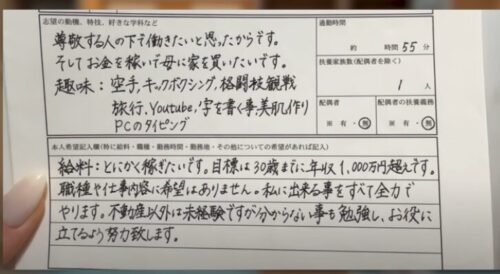 志望の動機、特技、好きな学科など
尊敬する人の下で働きたいと思ったからです。
そしてお金を稼いで母に家を買いたいです。
趣味：空手,キックボクシング,格闘技観戦
旅行,Youtube,字を書く事,美肌作り
PCのタイピング
通勤時間
約 時間 55分
扶養家族数(配偶者を除く)
1人
配偶者
※有・無
配偶者の扶養義務
※有・無
本人希望記入欄(特に給料・職種・勤務時間・勤務地・その他についての希望があれば記入)
給料：とにかく稼ぎたいです。目標は30歳までに年収1,000万円超えです。
職種や仕事内容に希望はありません。私に出来る事をすべて全力で
やります。不動産以外は未経験ですが分からない事も勉強し、お役に
立てるよう努力致します。